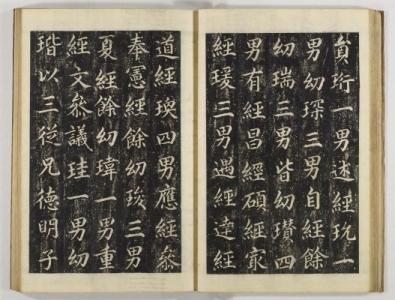 貟珩一男述經玩一
男幼琛三男自經餘
幼瑞三男皆幼瓚四
男有經昌經碩經家
經瑗三男遇經達經
道經瑍四男應經叅
奉憲經餘幼三男
夏經餘幼瑋一男重
經文叅議珪一男幼
瑎以三從兄德明子